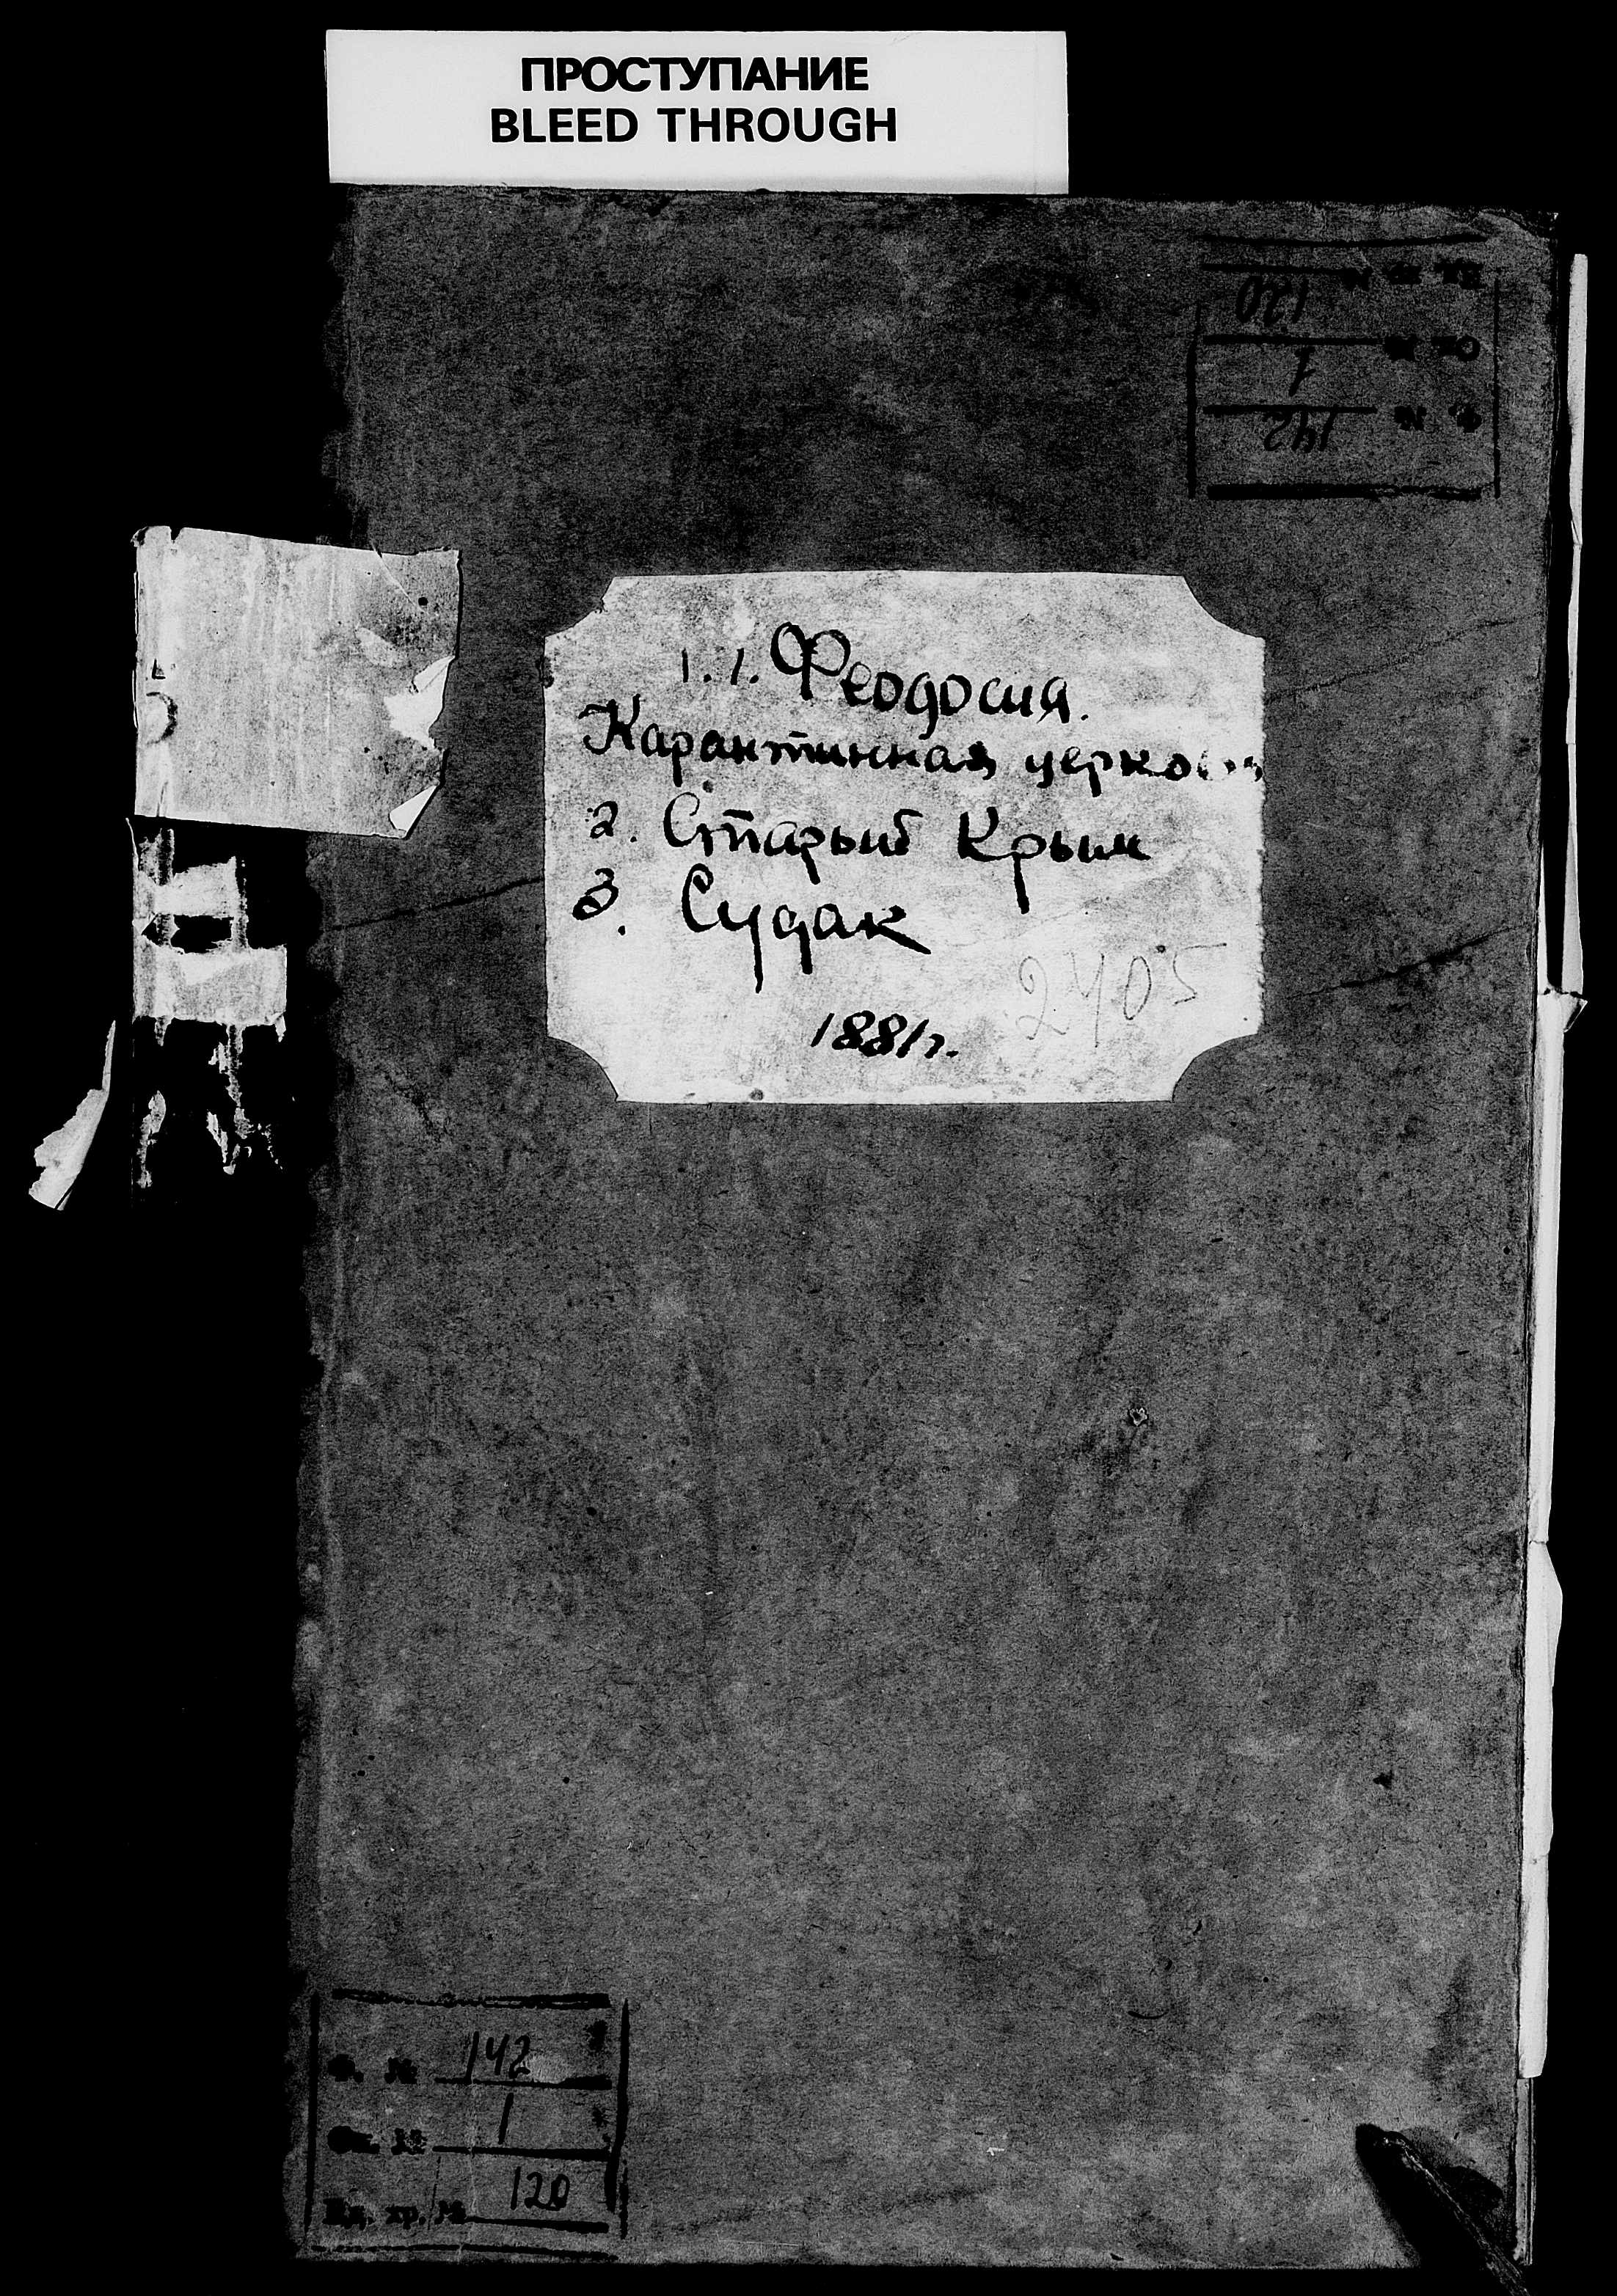 ПРОСТУПАНИЕ
BLEED THROUGH
Ед. хр. № 120
Оп. № 1
Ф. № 142
1. 1. Феодосия.
Карантинная церковь
2. Старый Крым
3. Судак
2405
1881 г.
Ф. № 142
Оп. № 1
Ед. хр. № 120